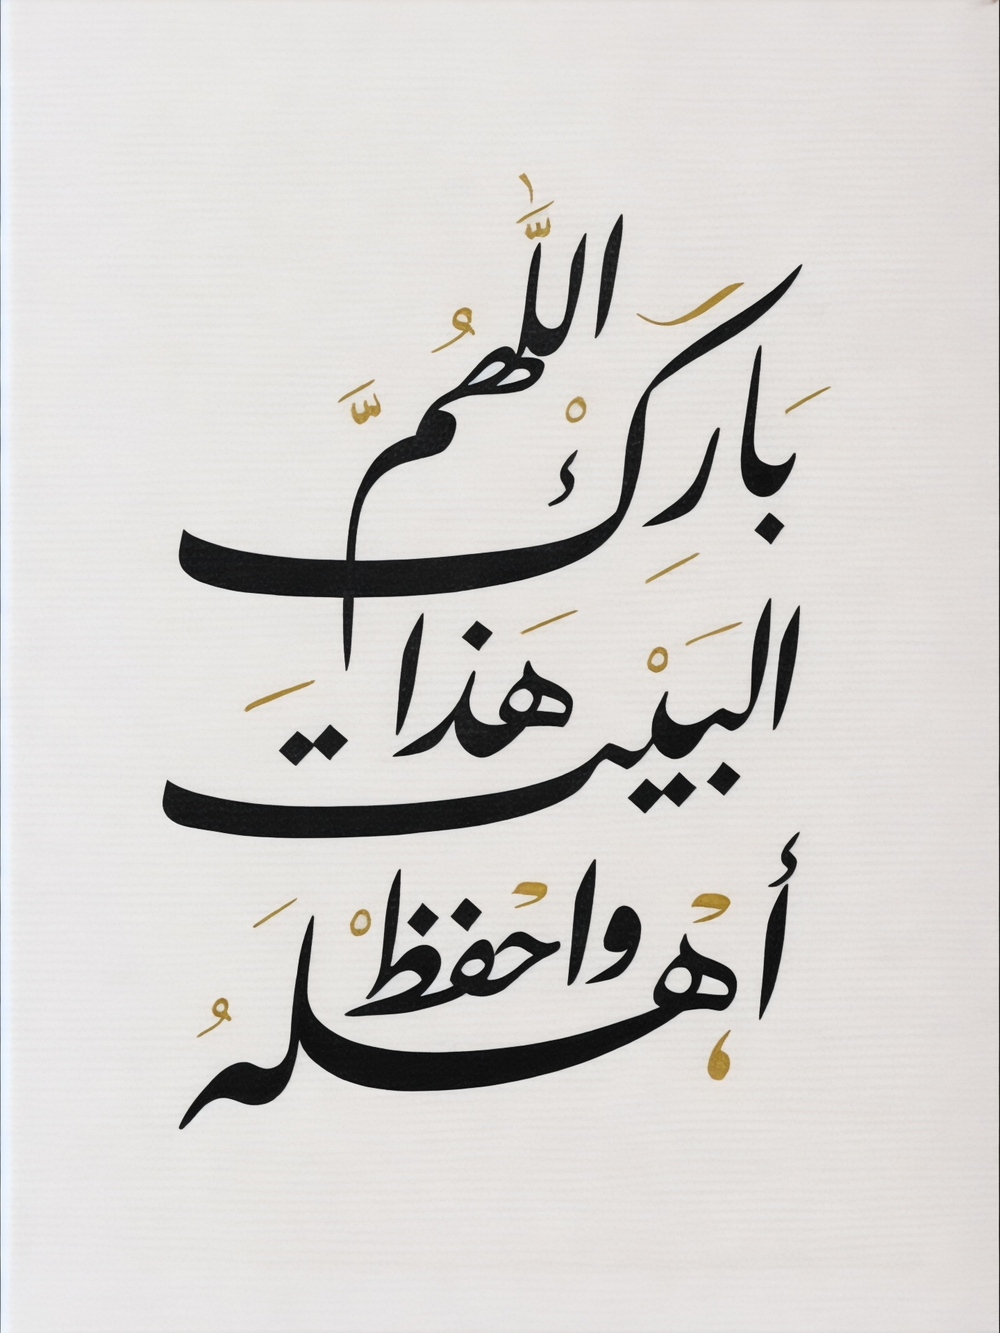 اللَّهُمَّ
بَارِكْ
هَذَا
البَيْتَ
واحفظْ
أهلَهُ